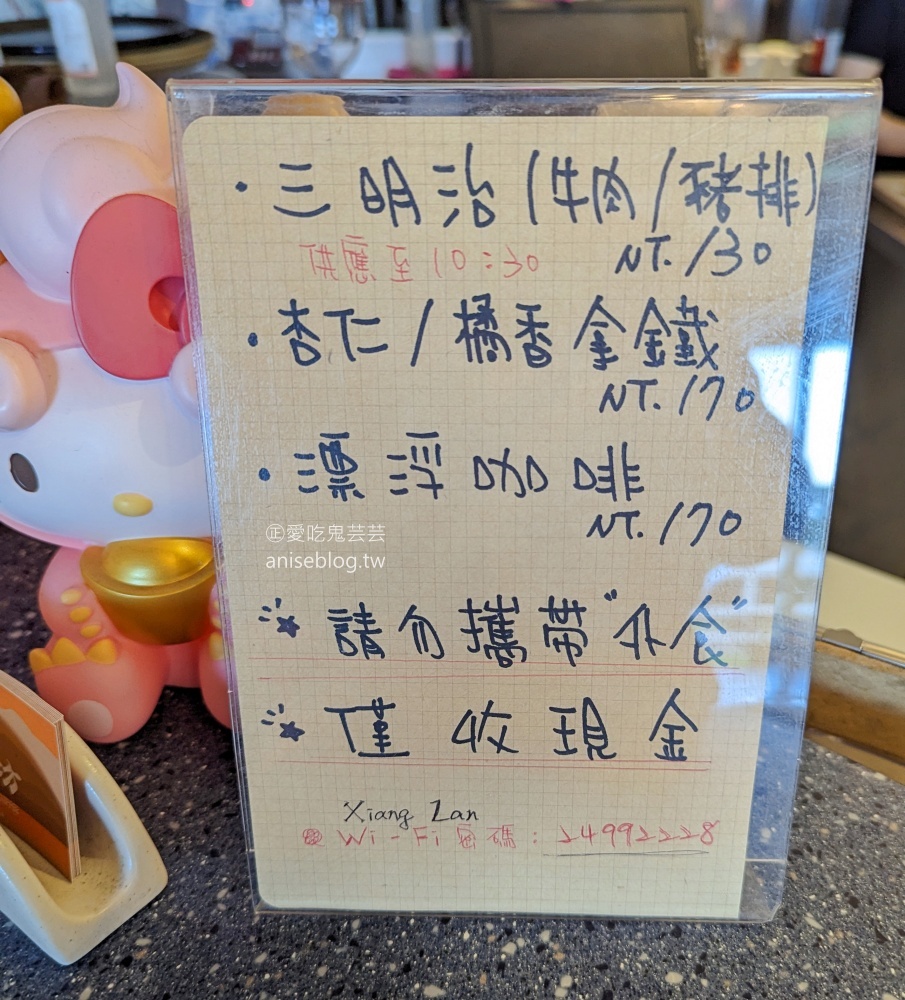 ・三明治(牛肉/豬排)
供應至10:30 NT.130
・杏仁/橘香拿鐵
NT.170
・漂浮咖啡
NT.170
㊣愛吃鬼芸芸
aniseblog.tw
請勿攜帶"外食"
僅收現金
Xiang Zan
Wi-Fi密碼：24992228